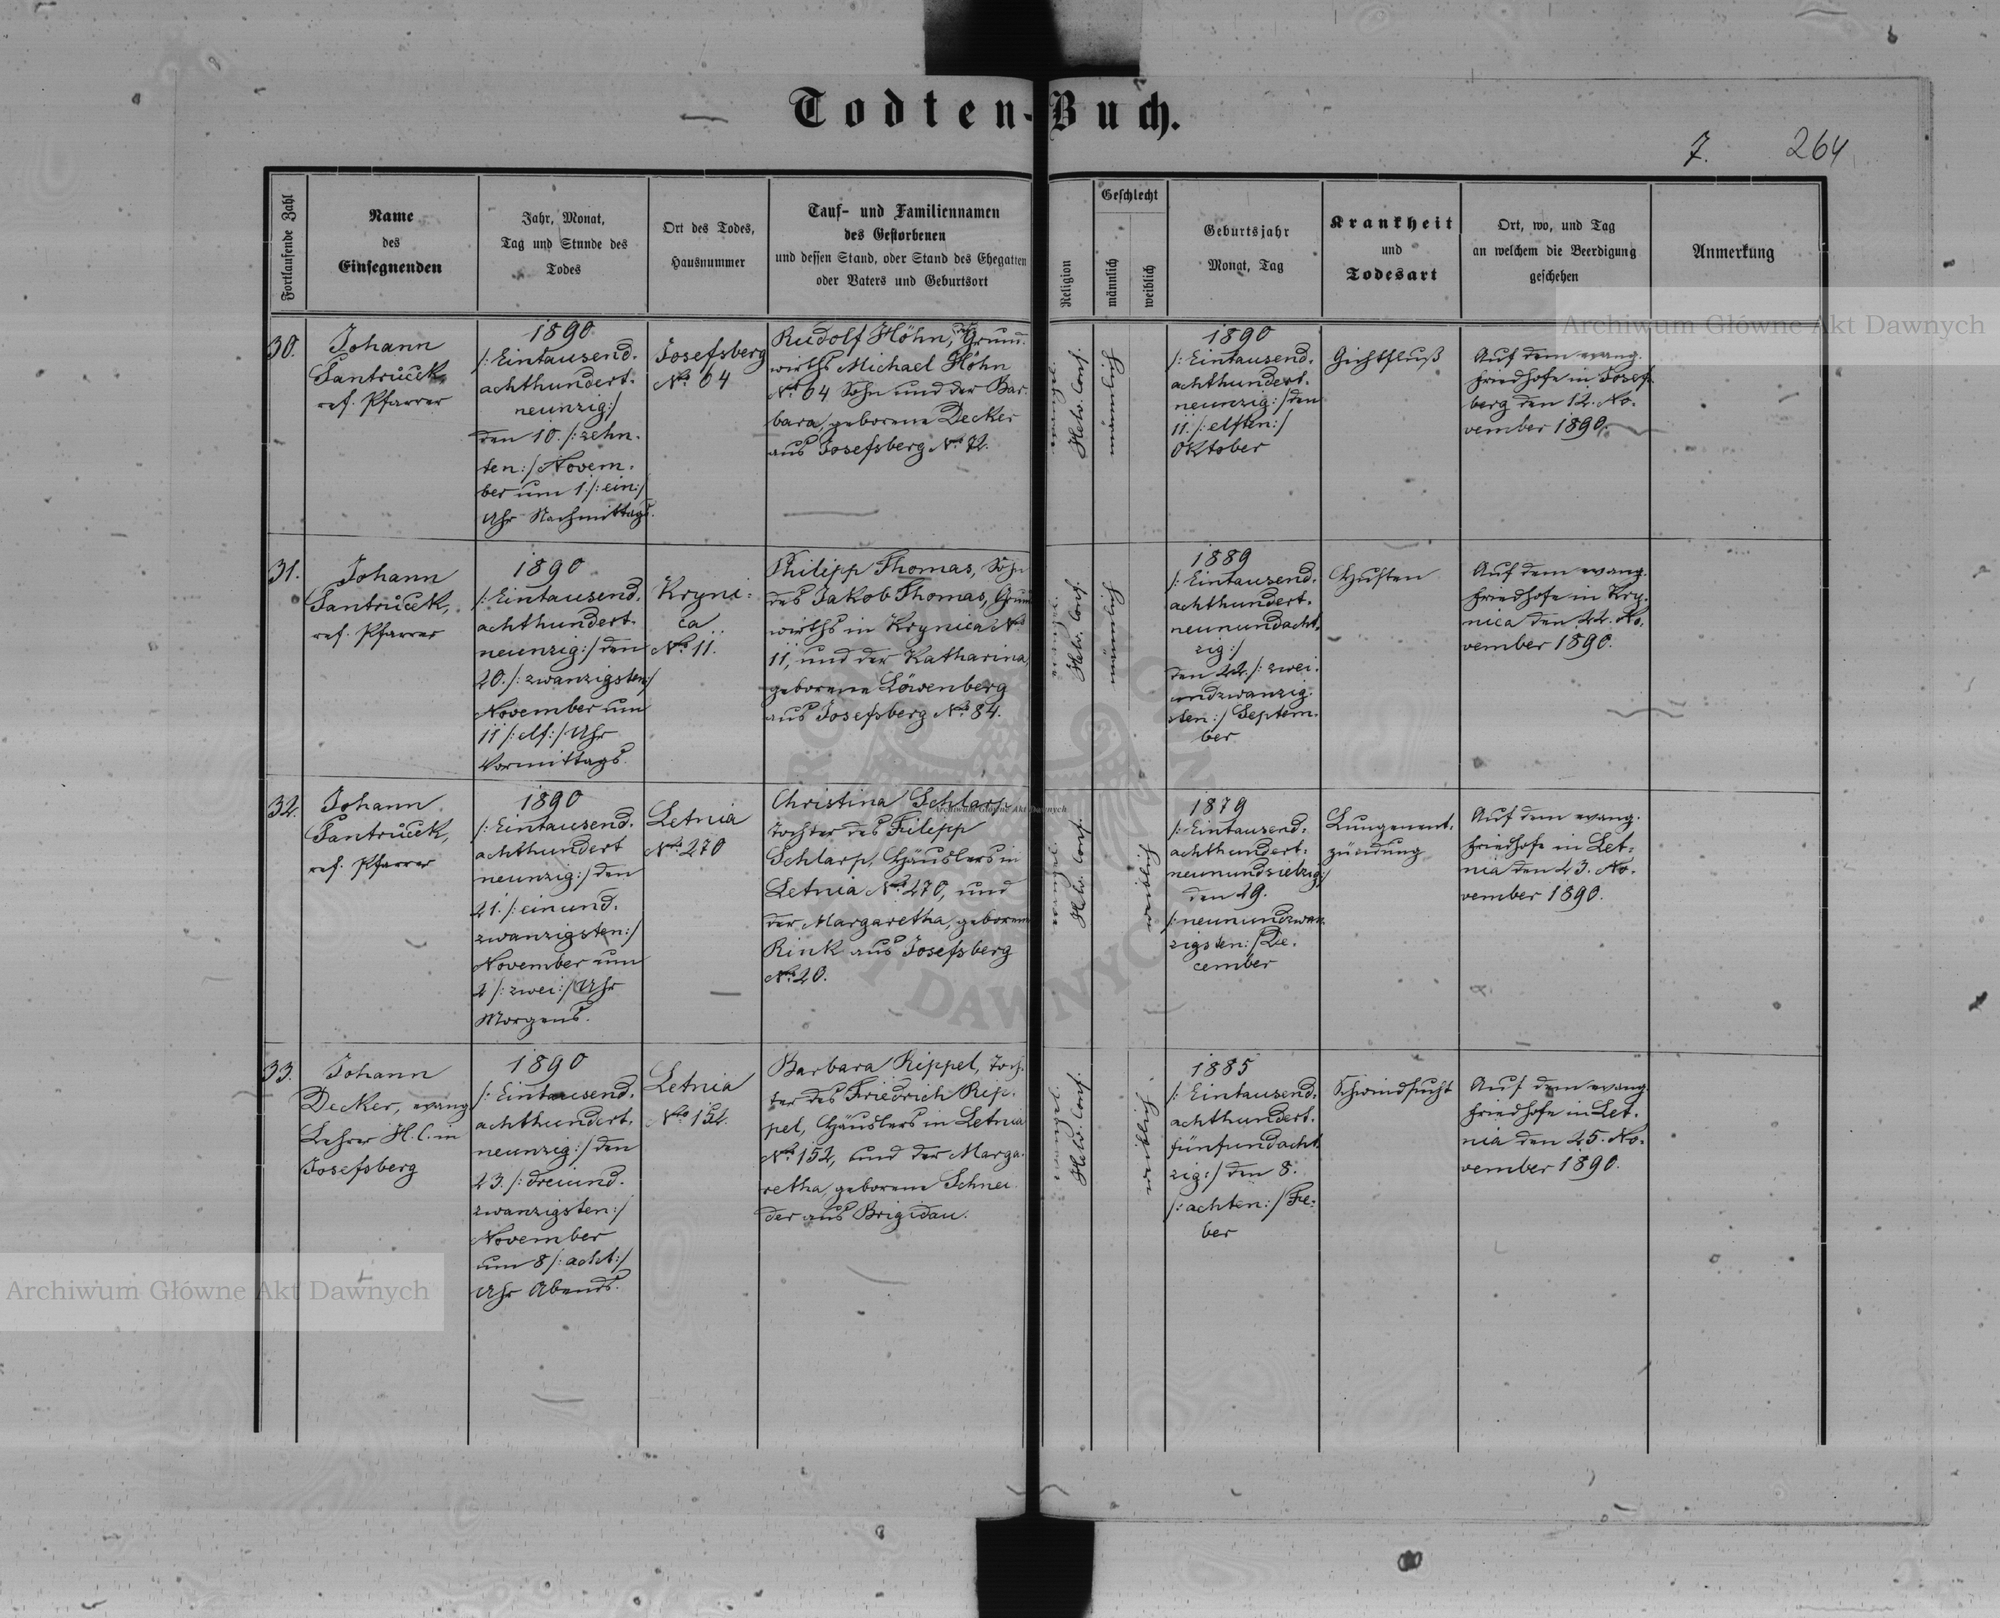 Todten-Buch.
7. 264
Fortlaufende Zahl
Name
des
Einsegnenden
Jahr, Monat,
Tag und Stunde des
Todes
Ort des Todes,
Hausnummer
Tauf- und Familiennamen
des Gestorbenen
und dessen Stand, oder Stand des Ehegatten
oder Vaters und Geburtsort
Religion
Geschlecht
männlich
weiblich
Geburtsjahr
Monat, Tag
Krankheit
und
Todesart
Ort, wo, und Tag
an welchem die Beerdigung
geschehen
Anmerkung
30.
Johann
Pantrůcek
ref. Pfarrer
1890
/: Eintausend-
achthundert-
neunzig :/
den 10. /: zehn-
ten :/ Novem-
ber um 1 /: ein :/
Uhr Nachmittags.
Josefsberg
No 64
Rudolf Höhn, des Grund-
wirths Michael Höhn
No 64 Sohn und der Bar-
bara, geborene Decker
aus Josefsberg No 72.
evangel.
Helv. Conf.
männlich
1890
/: Eintausend-
achthundert-
neunzig :/ den
11. /: elften :/
Oktober
Gichtfluß
Auf dem evang.
Friedhofe in Josefs-
berg den 12. No-
vember 1890.
31.
Johann
Pantrůcek,
ref. Pfarrer
1890
/: Eintausend-
achthundert-
neunzig :/ den
20. /: zwanzigsten :/
November um
11 /: elf :/ Uhr
Vormittags.
Kryni-
ca
No 11.
Philipp Thomas, Sohn
des Jakob Thomas, Grund-
wirths in Krynica No
11, und der Katharina,
geborene Löwenberg
aus Josefsberg No 84.
evangel.
Helv. Conf.
männlich
1889
/: Eintausend-
achthundert-
neunundacht-
zig :/
den 22. /: zwei-
undzwanzig-
sten :/ Septem-
ber
Husten
Auf dem evang.
Friedhofe in Kry-
nica den 22. No-
vember 1890.
32.
Johann
Pantrůcek,
ref. Pfarrer
1890
/: Eintausend-
achthundert
neunzig :/ den
21. /: einund-
zwanzigsten :/
November um
2 /: zwei :/ Uhr
Morgens.
Letnia
No 270
Christina Schlarp
Tochter des Filipp
Schlarp, Häuslers in
Letnia No 270, und
der Margaretha, geborene
Rink aus Josefsberg
No 20.
evangel.
Helv. Conf.
weiblich
1879
/: Eintausend-
achthundert-
neunundsiebzig :/
den 29.
/: neunundzwan-
zigsten :/ De-
cember
Lungenent-
zündung
Auf dem evang.
Friedhofe in Let-
nia den 23. No-
vember 1890.
33.
Johann
Decker, evang.
Lehrer H. C. in
Josefsberg
1890
/: Eintausend-
achthundert-
neunzig :/ den
23. /: dreiund-
zwanzigsten :/
November
um 8 /: acht :/
Uhr Abends.
Letnia
No 152.
Barbara Rippel, Toch-
ter des Friedrich Rip-
pel, Häuslers in Letnia
No 152, und der Marga-
retha, geborene Schnei-
der aus Brigidau.
evangel.
Helv. Conf.
weiblich
1885
/: Eintausend-
achthundert-
fünfundacht-
zig :/ den 8.
/: achten :/ Fe-
ber
Schwindsucht
Auf dem evang.
Friedhofe in Let-
nia den 25. No-
vember 1890.
Archiwum Główne Akt Dawnych
Archiwum Główne Akt Dawnych
Archiwum Główne Akt Dawnych